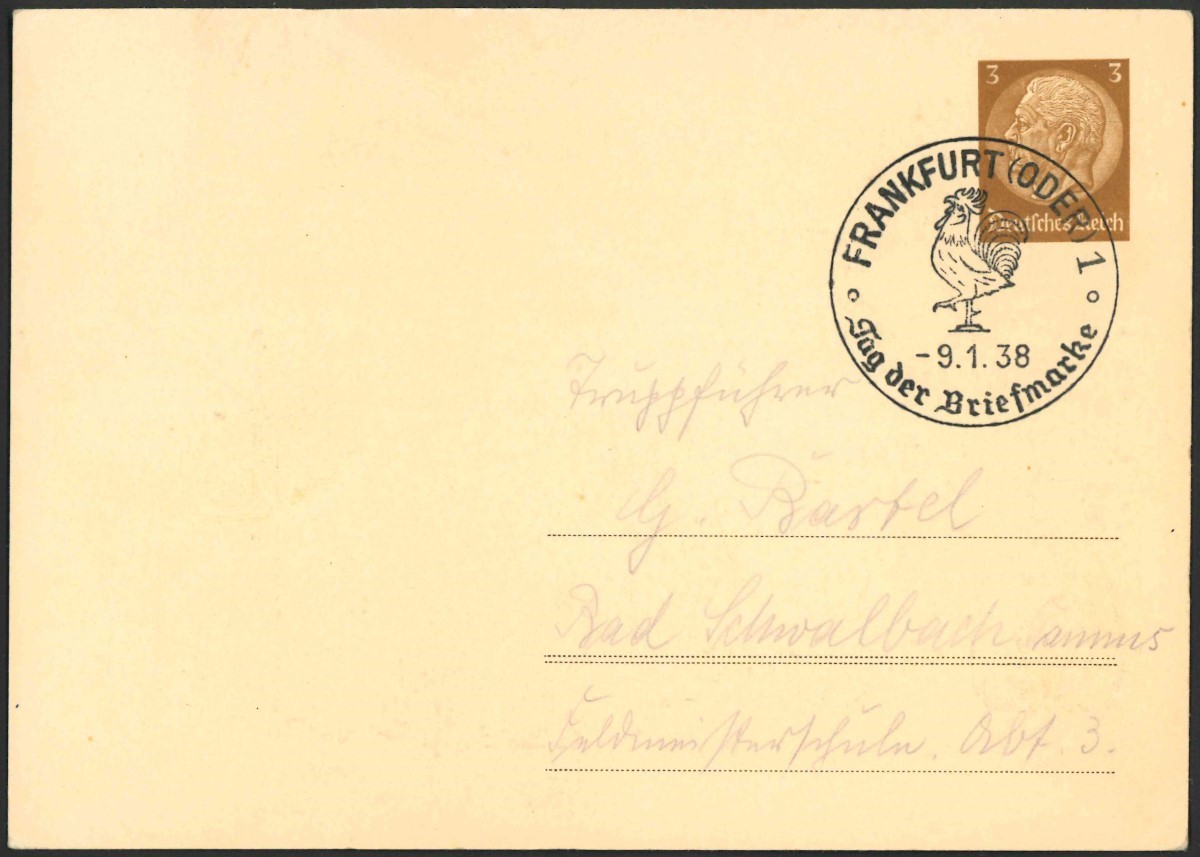 3 3
Deutsches Reich
FRANKFURT (ODER) 1
-9.1.38
Tag der Briefmarke
Truppführer
G. Bartel
Bad Schwalbach Taunus
Feldmeisterschule. Abt. 3.